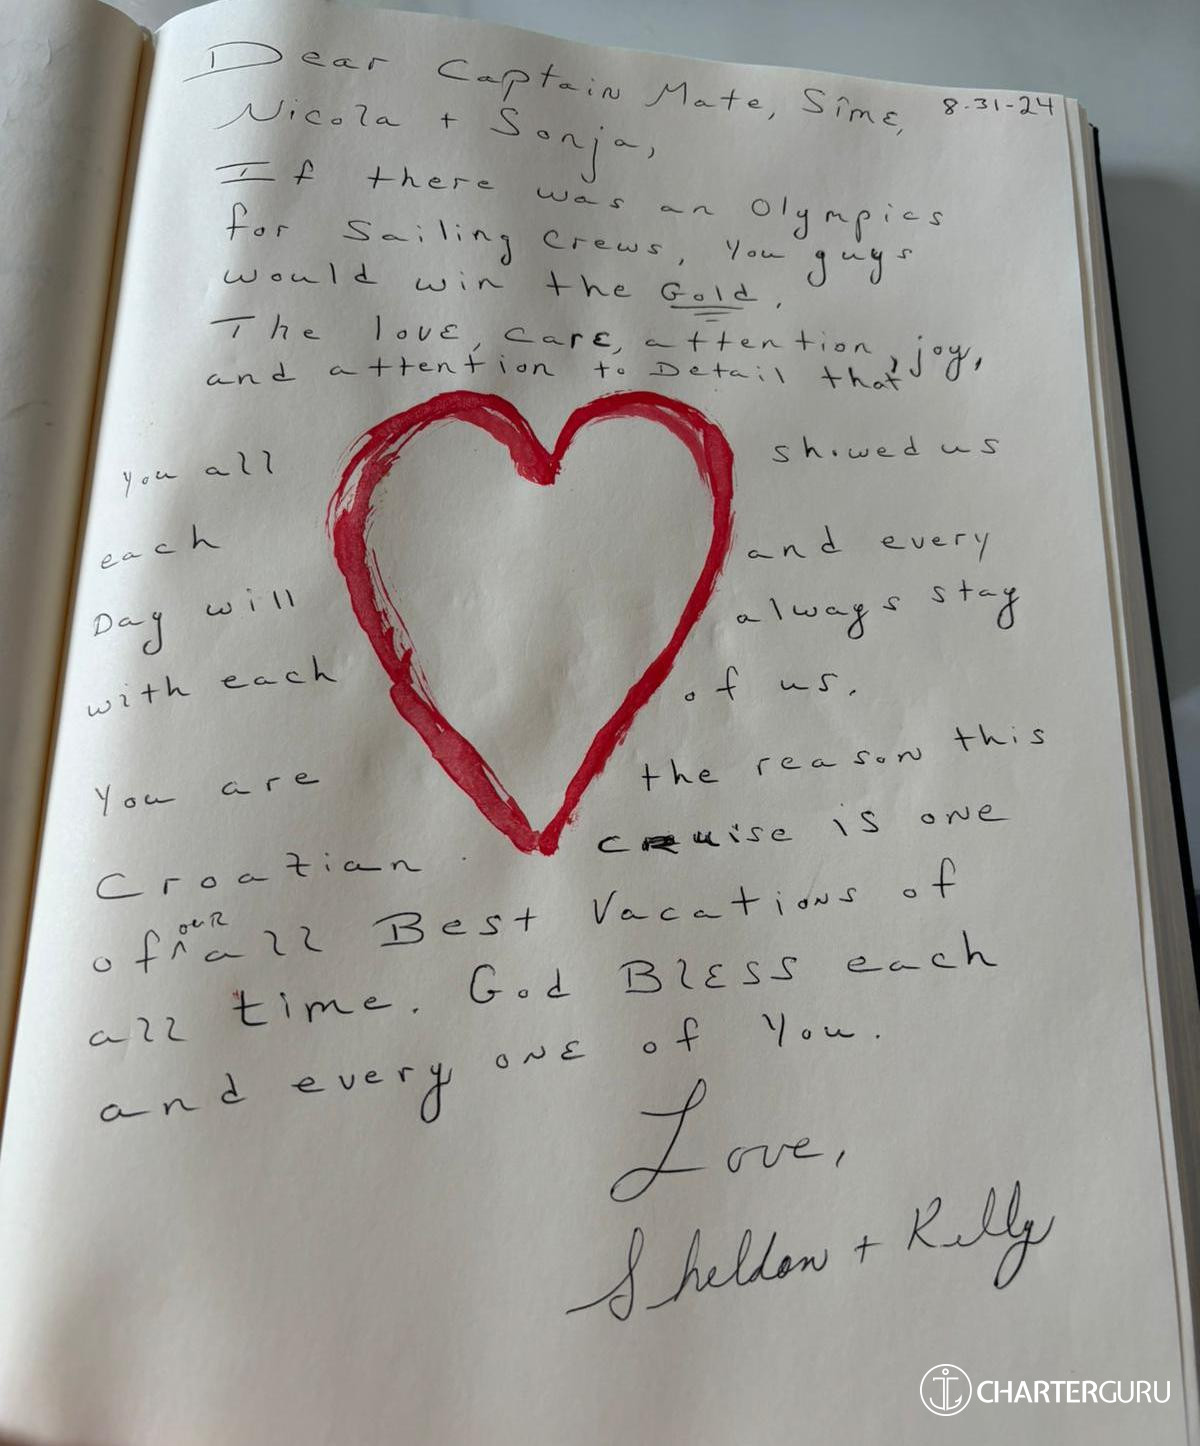 Dear Captain Mate, Sime,
8-31-24
Nicola + Sonja,
If there was an Olympics
for Sailing crews, you guys
would win the Gold.
The love, care, attention, joy,
and attention to Detail that
you all showed us
each and every
Day will always stay
with each of us.
You are the reason this
Croatian cruise is one
of our all Best Vacations of
all time. God Bless each
and every one of you.
Love,
Sheldon + Kelly
CHARTERGURU